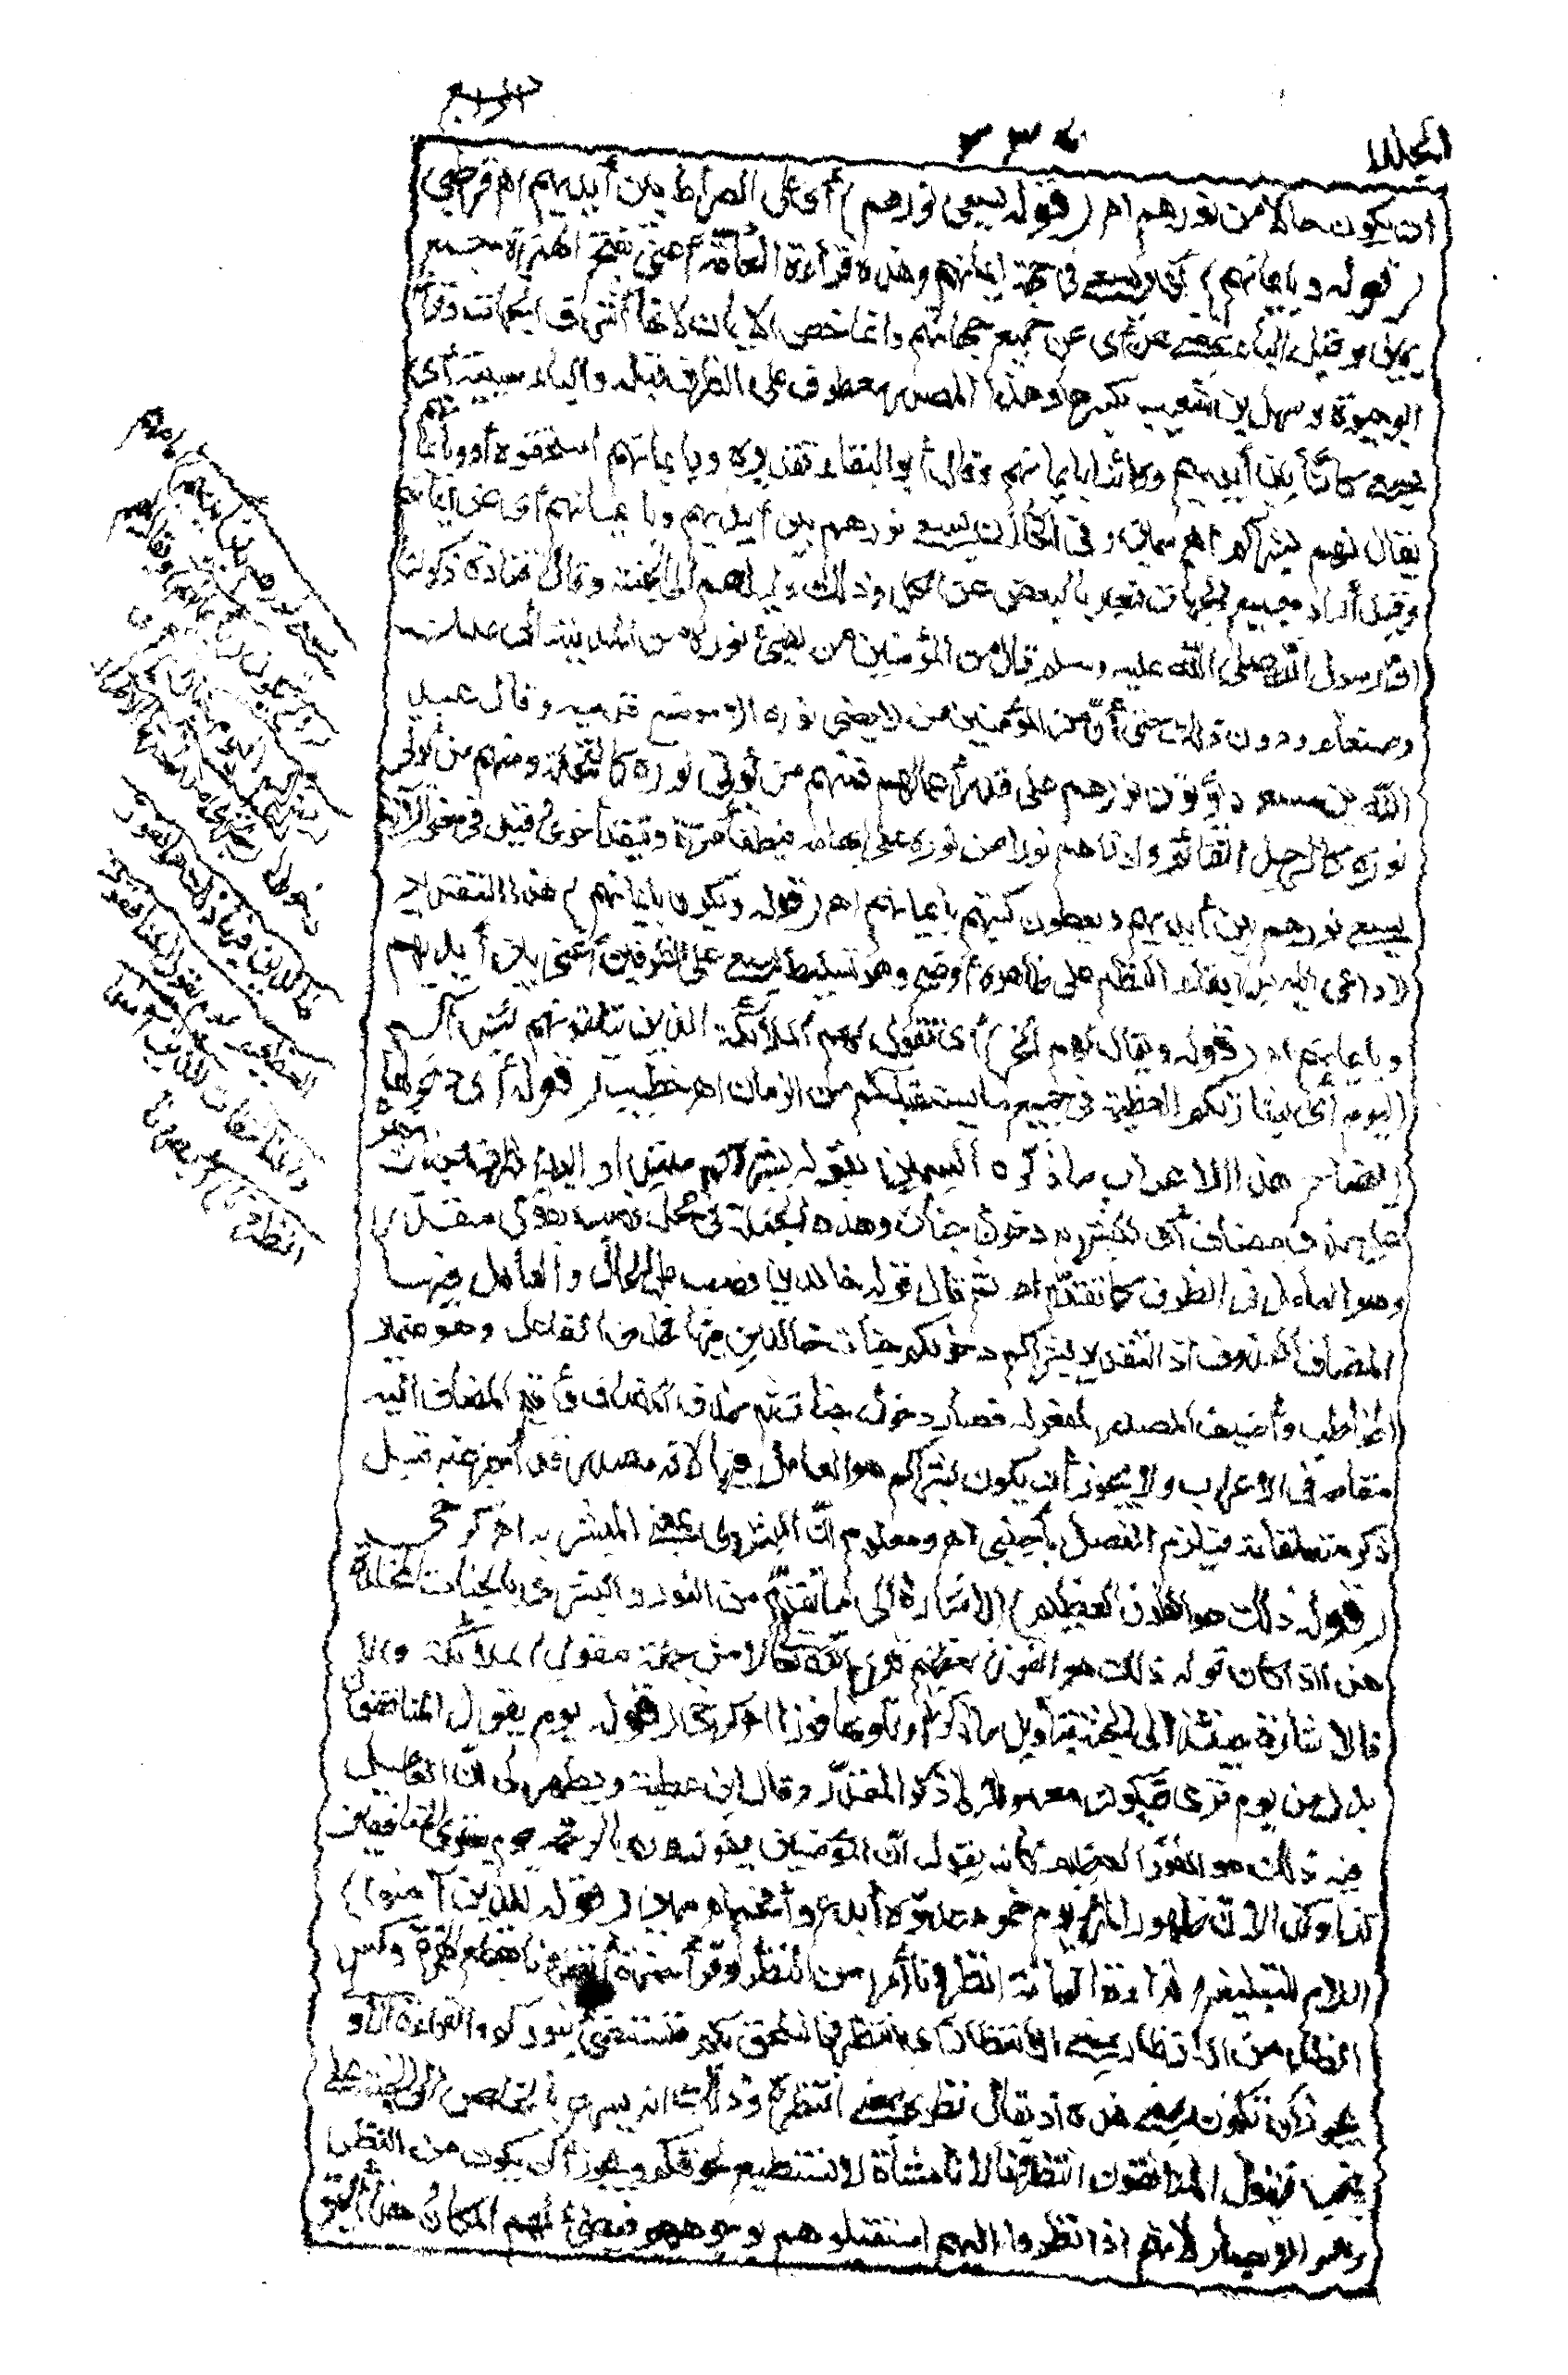 المجلد
٢٣٥
الرابع
ان يكون حالا من نورهم اه (قوله يسعى نورهم) أى على الصراط بين أيديهم اه قرطبى
(قوله وبايمانهم) أى ويسعى فى جهة ايمانهم وهذه قراءة العامة أعنى بفتح الهمزة جمع
يمين وقيل الباء بمعنى عن أى عن جميع جهاتهم وانما خص الايمان لانها أشرف الجهات وقرأ
ابو حيوة وسهل بن شعيب بكسرها وهذا المصدر معطوف على الظرف قبله والباء سببية أى
يسعى كائنا بين أيديهم وكائنا بايمانهم وقال أبو البقاء تقديره وبايمانهم استحقوه أو وبايمانهم
يقال لهم بشراكم اه سمين وفى الخازن يسعى نورهم بين أيديهم وبايمانهم أى عن ايمانهم
وقيل أراد جميع الجهات فعبر بالبعض عن الكل وذلك دليلهم الى الجنة وقال قتادة ذكر لنا
ان رسول الله صلى الله عليه وسلم قال من المؤمنين من يضىء نوره من المدينة الى عدن
وصنعاء ودون ذلك حتى أن من المؤمنين من لا يضىء نوره الا موضع قدميه وقال عبد
الله بن مسعود يؤتون نورهم على قدر أعمالهم فمنهم من يؤتى نوره كالنخلة ومنهم من يؤتى
نوره كالرجل القائم وأدناهم نورا من نوره على ابهامه فيطفأ مرة ويتقد أخرى وقيل فى معنى الآية
يسعى نورهم بين أيديهم ويعطون كتبهم بأيمانهم اه (قوله ويكون بايمانهم) هذا التقدير
لا داعى اليه بل ابقاء النظم على ظاهره أوضح وهو تسليط يسعى على الظرفين أعنى بين أيديهم
وبايمانهم اه (قوله ويقال لهم الخ) أى تقول لهم الملائكة الذين يتلقونهم بشراكم
اليوم أى بشارتكم العظيمة فى جميع ما يستقبلكم من الزمان اه خطيب (قوله أى دخولها)
ايضاح هذا الاعراب ما ذكره السمين بقوله بشراكم مبتدا واليوم ظرف وجنات خبره
على حذف مضاف أى المبشر به دخول جنات وهذه الجملة فى محل نصب بقول مقدر
وهو العامل فى الظرف كما تقدم اه ثم قال قوله خالدين نصب على الحال والعامل فيها
المضاف المحذوف اذ التقدير بشراكم دخولكم جنات خالدين فيها فحذف الفاعل وهو ضمير
المخاطب وأضيف المصدر لمفعوله فصار دخول جنات ثم حذف المضاف وأقيم المضاف اليه
مقامه فى الاعراب ولا يجوز أن يكون بشراكم هو العامل فيها لانه مصدر قد أخبر عنه قبل
ذكر متعلقاته فيلزم الفصل بأجنبى اه ومعلوم ان البشرى بمعنى المبشر به اه كرخى
(قوله ذلك هو الفوز العظيم) الاشارة الى ما تقدم من النور والبشرى بالجنات المخلدة
هذا اذا كان قوله ذلك هو الفوز العظيم قول الله تعالى لا من جملة مقول الملائكة والا
فالاشارة حينئذ الى الجنة بتأويل ما ذكر أو لكونها فوزا اه كرخى (قوله يوم يقول المنافقون)
بدل من يوم ترى فيكون معمولا لاذكر المقدر وقال ابن عطية ويظهر لى ان العامل
فيه ذلك هو الفوز العظيم كأنه يقول ان المؤمنين يفوزون بالرحمة يوم يعترى المنافقين
كذا وكذا لان ظهور المرء يوم خمود عدوه أبدع وأفخم اه سمين (قوله للذين آمنوا)
اللام للتبليغ وقراءة العامة انظرونا أمرا من النظر وقرأ حمزة أنظرونا بقطع الهمزة وكسر
الظاء من الانظار بمعنى الانتظار أى انتظرونا لنلحق بكم فنستضىء بنوركم والقراءة الأولى
يجوز أن تكون بمعنى هذه اذ يقال نظره بمعنى انتظره وذلك انه يسرع بالخلص الى الجنة على
نجب فيقول المنافقون انتظرونا لأنا مشاة لا نستطيع لحوقكم ويجوز أن يكون من النظر
وهو الابصار لانهم اذا نظروا اليهم استقبلوهم بوجوههم فيضىء لهم المكان
انظرونا) أبصرونا